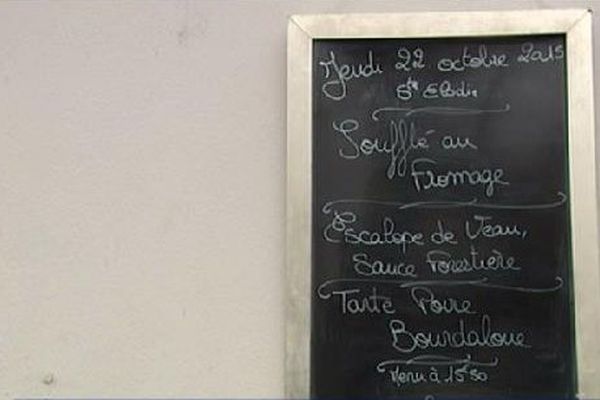 Jeudi 22 octobre 2015
Ste Elodie
Soufflé au
Fromage
Escalope de Veau,
Sauce Forestière
Tarte Poire
Bourdaloue
Menu à 15€50